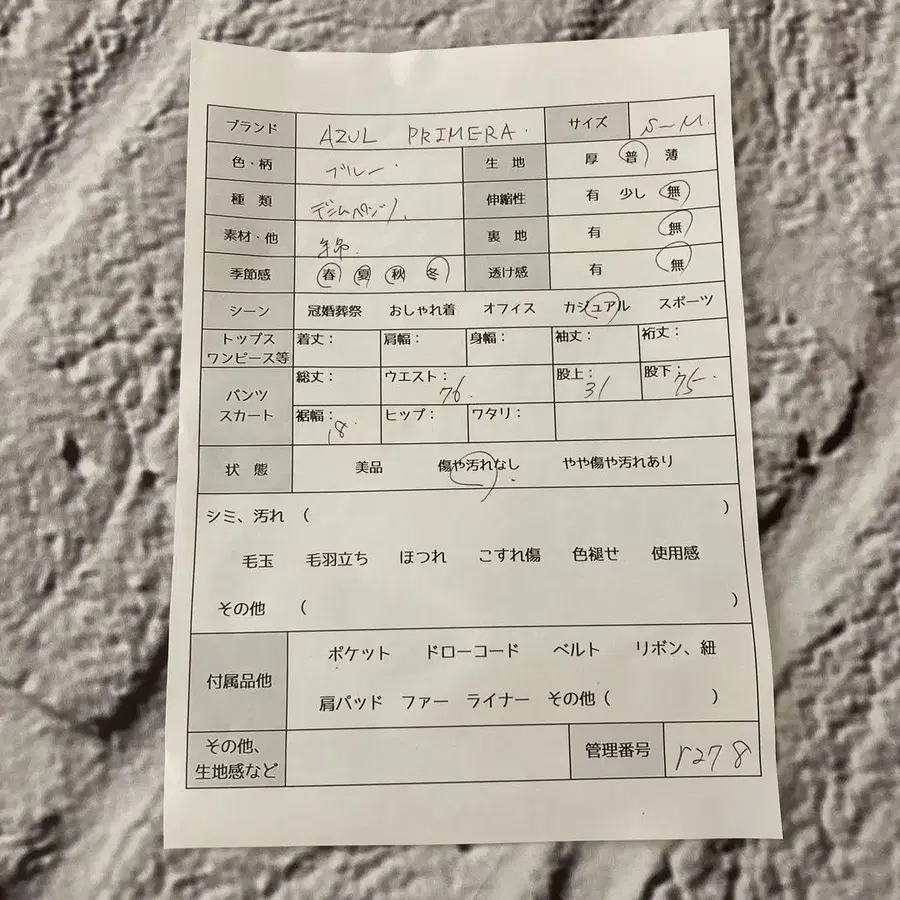 ブランド AZUL PRIMERA サイズ S-M
色・柄 ブルー 生地 厚 普 薄
種類 デニムパンツ 伸縮性 有 少し 無
素材・他 綿 裏地 有 無
季節感 春 夏 秋 冬 透け感 有 無
シーン 冠婚葬祭 おしゃれ着 オフィス カジュアル スポーツ
トップス
ワンピース等 着丈： 肩幅： 身幅： 袖丈： 裄丈：
パンツ
スカート 総丈： ウエスト：76 股上：31 股下：75
裾幅：18 ヒップ： ワタリ：
状態 美品 傷や汚れなし やや傷や汚れあり
シミ、汚れ （ ）
毛玉 毛羽立ち ほつれ こすれ傷 色褪せ 使用感
その他 （ ）
付属品他 ポケット ドローコード ベルト リボン、紐
肩パッド ファー ライナー その他（ ）
その他、
生地感など 管理番号 r278